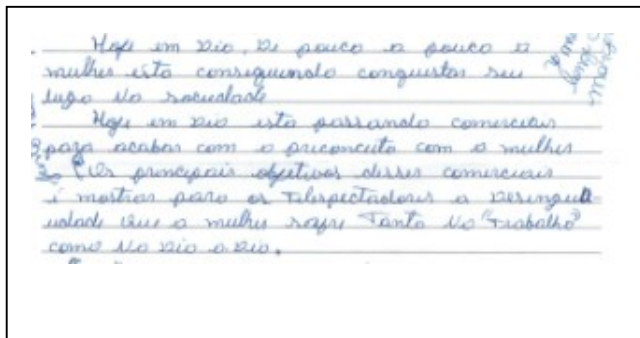 Hoje em Dia, De pouco a pouco a
mulher esta conseguindo conquistar seu
lugo na sociedade
Hoje em Dia esta passando comerciais
para acabar com o preconceito com a mulher
Os principais objetivos desses comerciais
é mostrar para os Telespectadores a Desingua
ualdade que a mulher sofre Tanto No "Trabalho"
como No Dia a Dia.